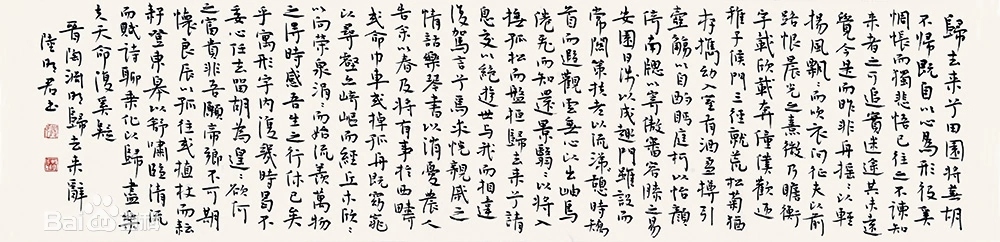 歸去来兮田園將蕪胡
不歸既自以心為形役奚
惆悵而獨悲悟已往之不諫知
来者之可追實迷途其未遠
覺今是而昨非舟搖々以輕
揚風飄々而吹衣问征夫以前
路恨晨光之熹微乃瞻衡
宇載欣載奔僮僕歡迎
稚子候門三徑就荒松菊猶
存携幼入室有酒盈樽引
壺觴以自酌眄庭柯以怡顏
倚南牕以寄傲審容膝之易
安園日涉以成趣門雖設而
常關策扶老以流憩時矯
首而遐觀雲無心以出岫鳥
倦飛而知還景翳々以將入
撫孤松而盤桓歸去来兮請
息交以絶遊世与我而相違
復駕言兮焉求悦親戚之
情話樂琴書以消憂農人
告余以春及將有事於西疇
或命巾車或棹孤舟既窈窕
以尋壑亦崎嶇而經丘木欣々
以向榮泉涓々而始流羡萬物
之得時感吾生之行休已矣
乎寓形宇内復幾時曷不
委心任去留胡為遑々欲何
之富貴非吾願帝鄉不可期
懷良辰以孤往或植杖而耘
耔登東皋以舒嘯臨清流
而賦诗聊乘化以歸盡樂
夫天命復奚疑
晋陶渊明歸去来辭
陸明君书
Baidu百科